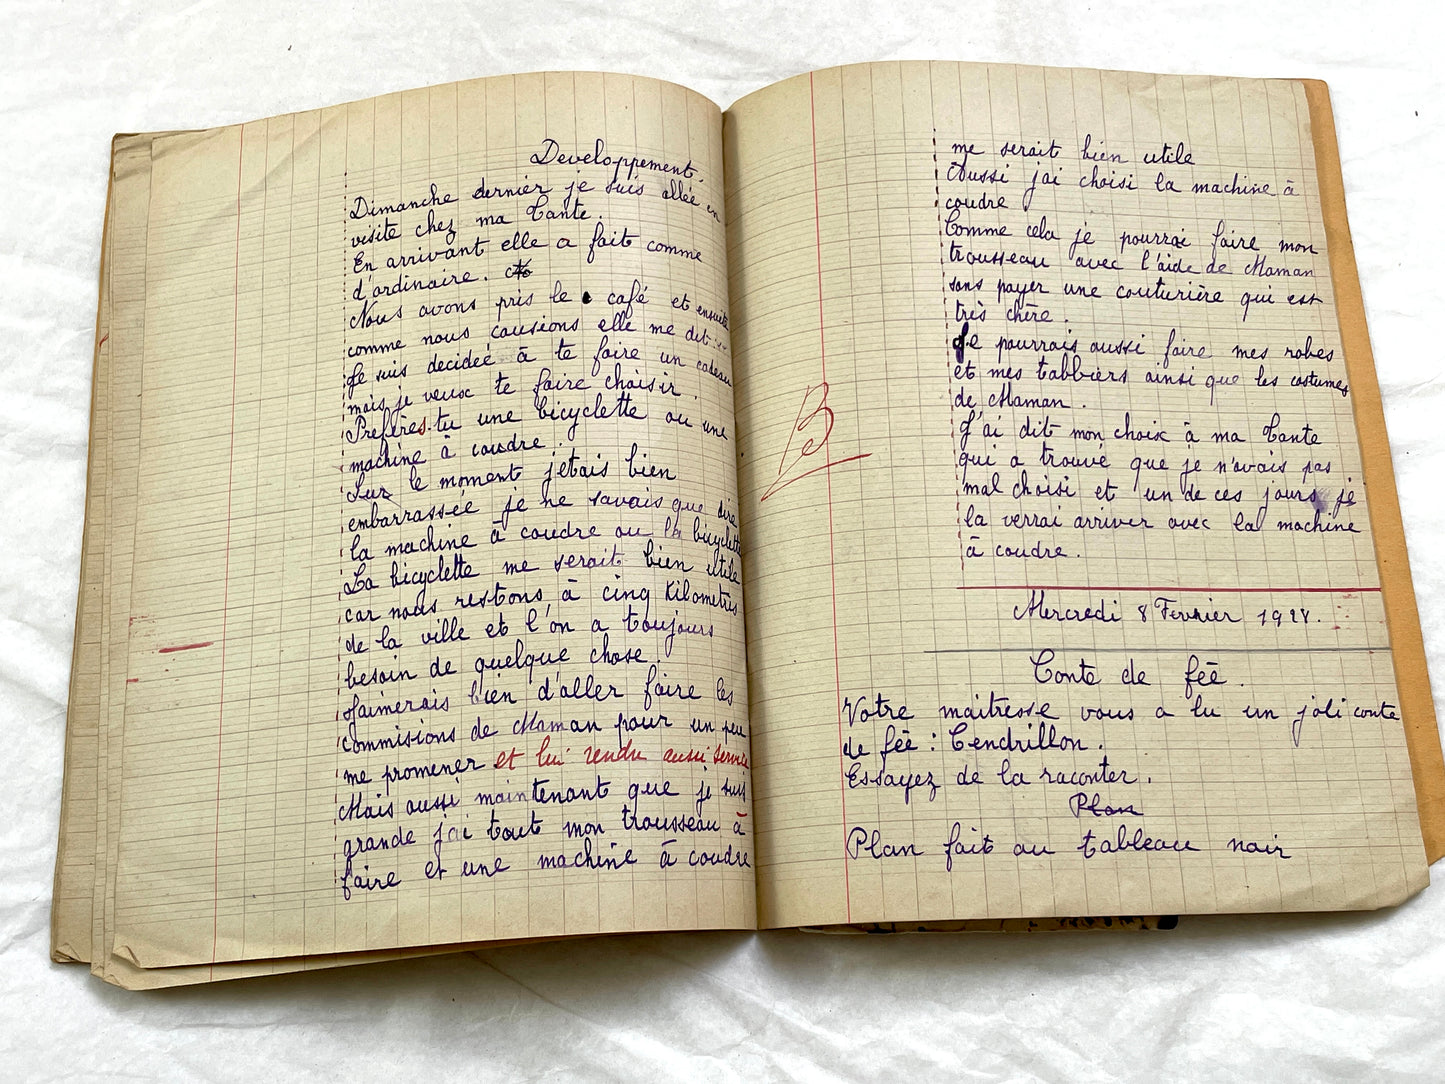 Developpement.
Dimanche dernier je suis allée en
visite chez ma Tante.
En arrivant elle a fait comme
d'ordinaire.
Nous avons pris le café et ensuite
comme nous causions elle me dit :
Je suis decideé à te faire un cadeau
mais je veux te faire choisir.
Prefères-tu une bicyclette ou une
machine à coudre.
Sur le moment jetais bien
embarrassée je ne savais que dire
la machine à coudre ou la bicyclette
La bicyclette me serait bien utile
car nous restons à cinq Kilometres
de la ville et l'on a toujours
besoin de quelque chose.
Jaimerais bien d'aller faire les
commisions de Maman pour un peu
me promener et lui rendre aussi service
Mais aussi maintenant que je suis
grande j'ai tout mon trousseau à
faire et une machine à coudre
me serait bien utile
Aussi jai choisi la machine à
coudre
Comme cela je pourrai faire mon
trousseau avec l'aide de Maman
sans payer une couturière qui est
très chère.
Je pourrais aussi faire mes robes
et mes tabbiers ainsi que les costumes
de Maman.
J'ai dit mon choix à ma Tante
qui a trouvé que je n'avais pas
mal choisi et un de ces jours je
la verrai arriver avec la machine
à coudre.
B
Mercredi 8 Fevrier 1928.
Conte de feé.
Votre maitresse vous a lu un joli conte
de feé : Cendrillon.
Essayez de la raconter.
Plan
Plan fait au tableau noir